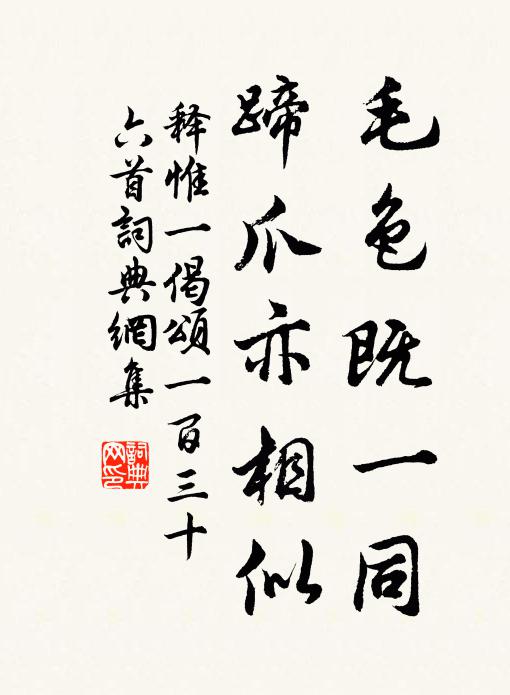 毛色既一同
蹄爪亦相似
释惟一偈頌一百三十
六首詞典網集
詞典網印